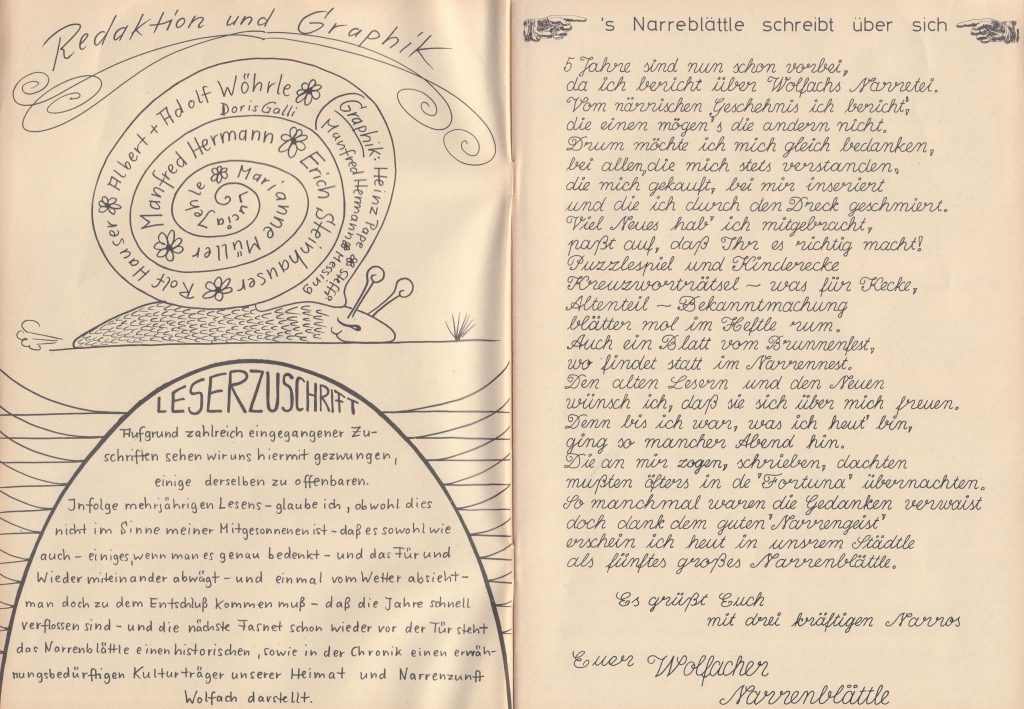 Redaktion und Graphik
Albert + Adolf Wöhrle
Doris Galli
Graphik: Heinz Pape
Manfred Hermann
Steffi Messing
Manfred Hermann
Erich Steinhauser
Rolf Hauser
Marianne Müller
Lucia Jehle
LESERZUSCHRIFT
Aufgrund zahlreich eingegangener Zu-
schriften sehen wir uns hiermit gezwungen,
einige derselben zu offenbaren.
Infolge mehrjährigen Lesens – glaube ich, obwohl dies
nicht im Sinne meiner Mitgesonnenen ist – daß es sowohl wie
auch – einiges, wenn man es genau bedenkt – und das Für und
Wieder miteinander abwägt – und einmal vom Wetter absieht –
man doch zu dem Entschluß kommen muß – daß die Jahre schnell
verflossen sind – und die nächste Fasnet schon wieder vor der Tür steht
das Narrenblättle einen historischen, sowie in der Chronik einen erwäh-
nungsbedürftigen Kulturträger unserer Heimat und Narrenzunft
Wolfach darstellt.
's Narreblättle schreibt über sich
5 Jahre sind nun schon vorbei,
da ich bericht über Wolfachs Narretei.
Vom närrischen Geschehnis ich bericht',
die einen mögen's die andern nicht.
Drum möchte ich mich gleich bedanken,
bei allen, die mich stets verstanden,
die mich gekauft, bei mir inseriert
und die ich durch den Dreck geschmiert.
Viel Neues hab' ich mitgebracht,
paßt auf, daß Ihr es richtig macht!
Puzzlespiel und Kinderecke
Kreuzworträtsel – was für Kecke,
Altenteil – Bekanntmachung
blätter mol im Heftle rum.
Auch ein Blatt vom Brunnenfest,
wo findet statt im Narrennest.
Den alten Lesern und den Neuen
wünsch ich, daß sie sich über mich freuen.
Denn bis ich war, was ich heut' bin,
ging so mancher Abend hin.
Die an mir zogen, schrieben, dachten
mußten öfters in de 'Fortuna' übernachten.
So manchmal waren die Gedanken verwaist
doch dank dem guten 'Narrengeist'
erschein ich heut in unsrem Städtle
als fünftes großes Narrenblättle.
Es grüßt Euch
mit drei kräftigen Narros
Euer Wolfacher
Narrenblättle